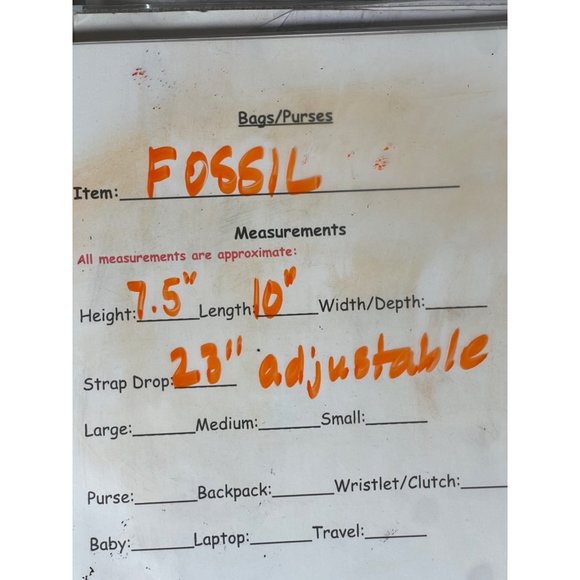 Bags/Purses
Item: FOSSIL
Measurements
All measurements are approximate:
Height: 7.5" Length: 10" Width/Depth:
Strap Drop: 23" adjustable
Large: Medium: Small:
Purse: Backpack: Wristlet/Clutch:
Baby: Laptop: Travel: